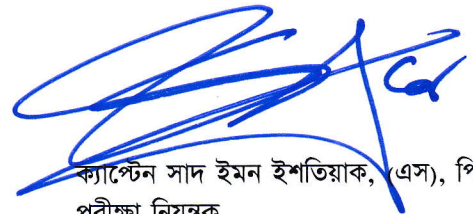 ক্যাপ্টেন সাদ ইমন ইশতিয়াক, (এস), পি
পরীক্ষা নিয়ন্ত্রক